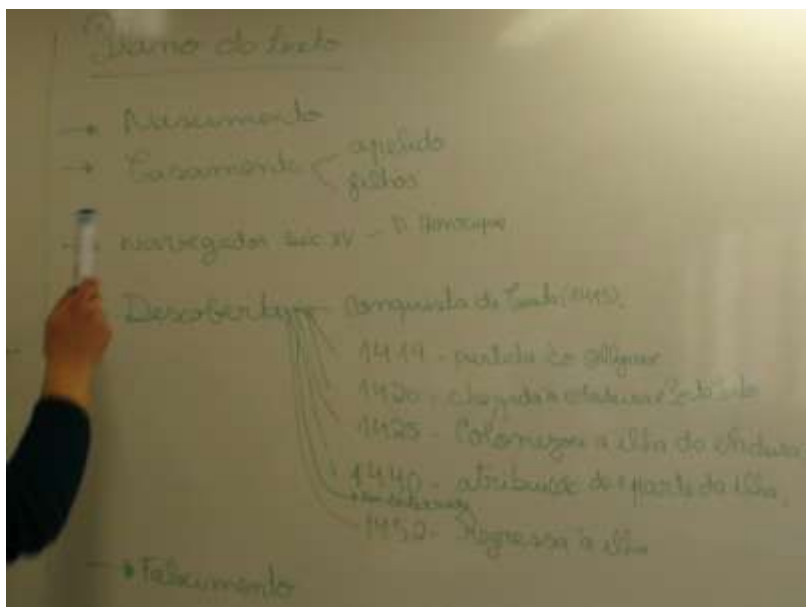 Plano do texto
→ Nascimento
→ Casamento < apelido
filhos
→ Navegador séc XV - D. Henrique
Descobertas - Conquista de Ceuta (1415).
1419 - partida do Algarve
1420 - chegada à Madeira e
1425 - Colonizou a ilha da Madeira
1440 - atribuição de parte da ilha.
1452 - Regressa à ilha
→ Falecimento